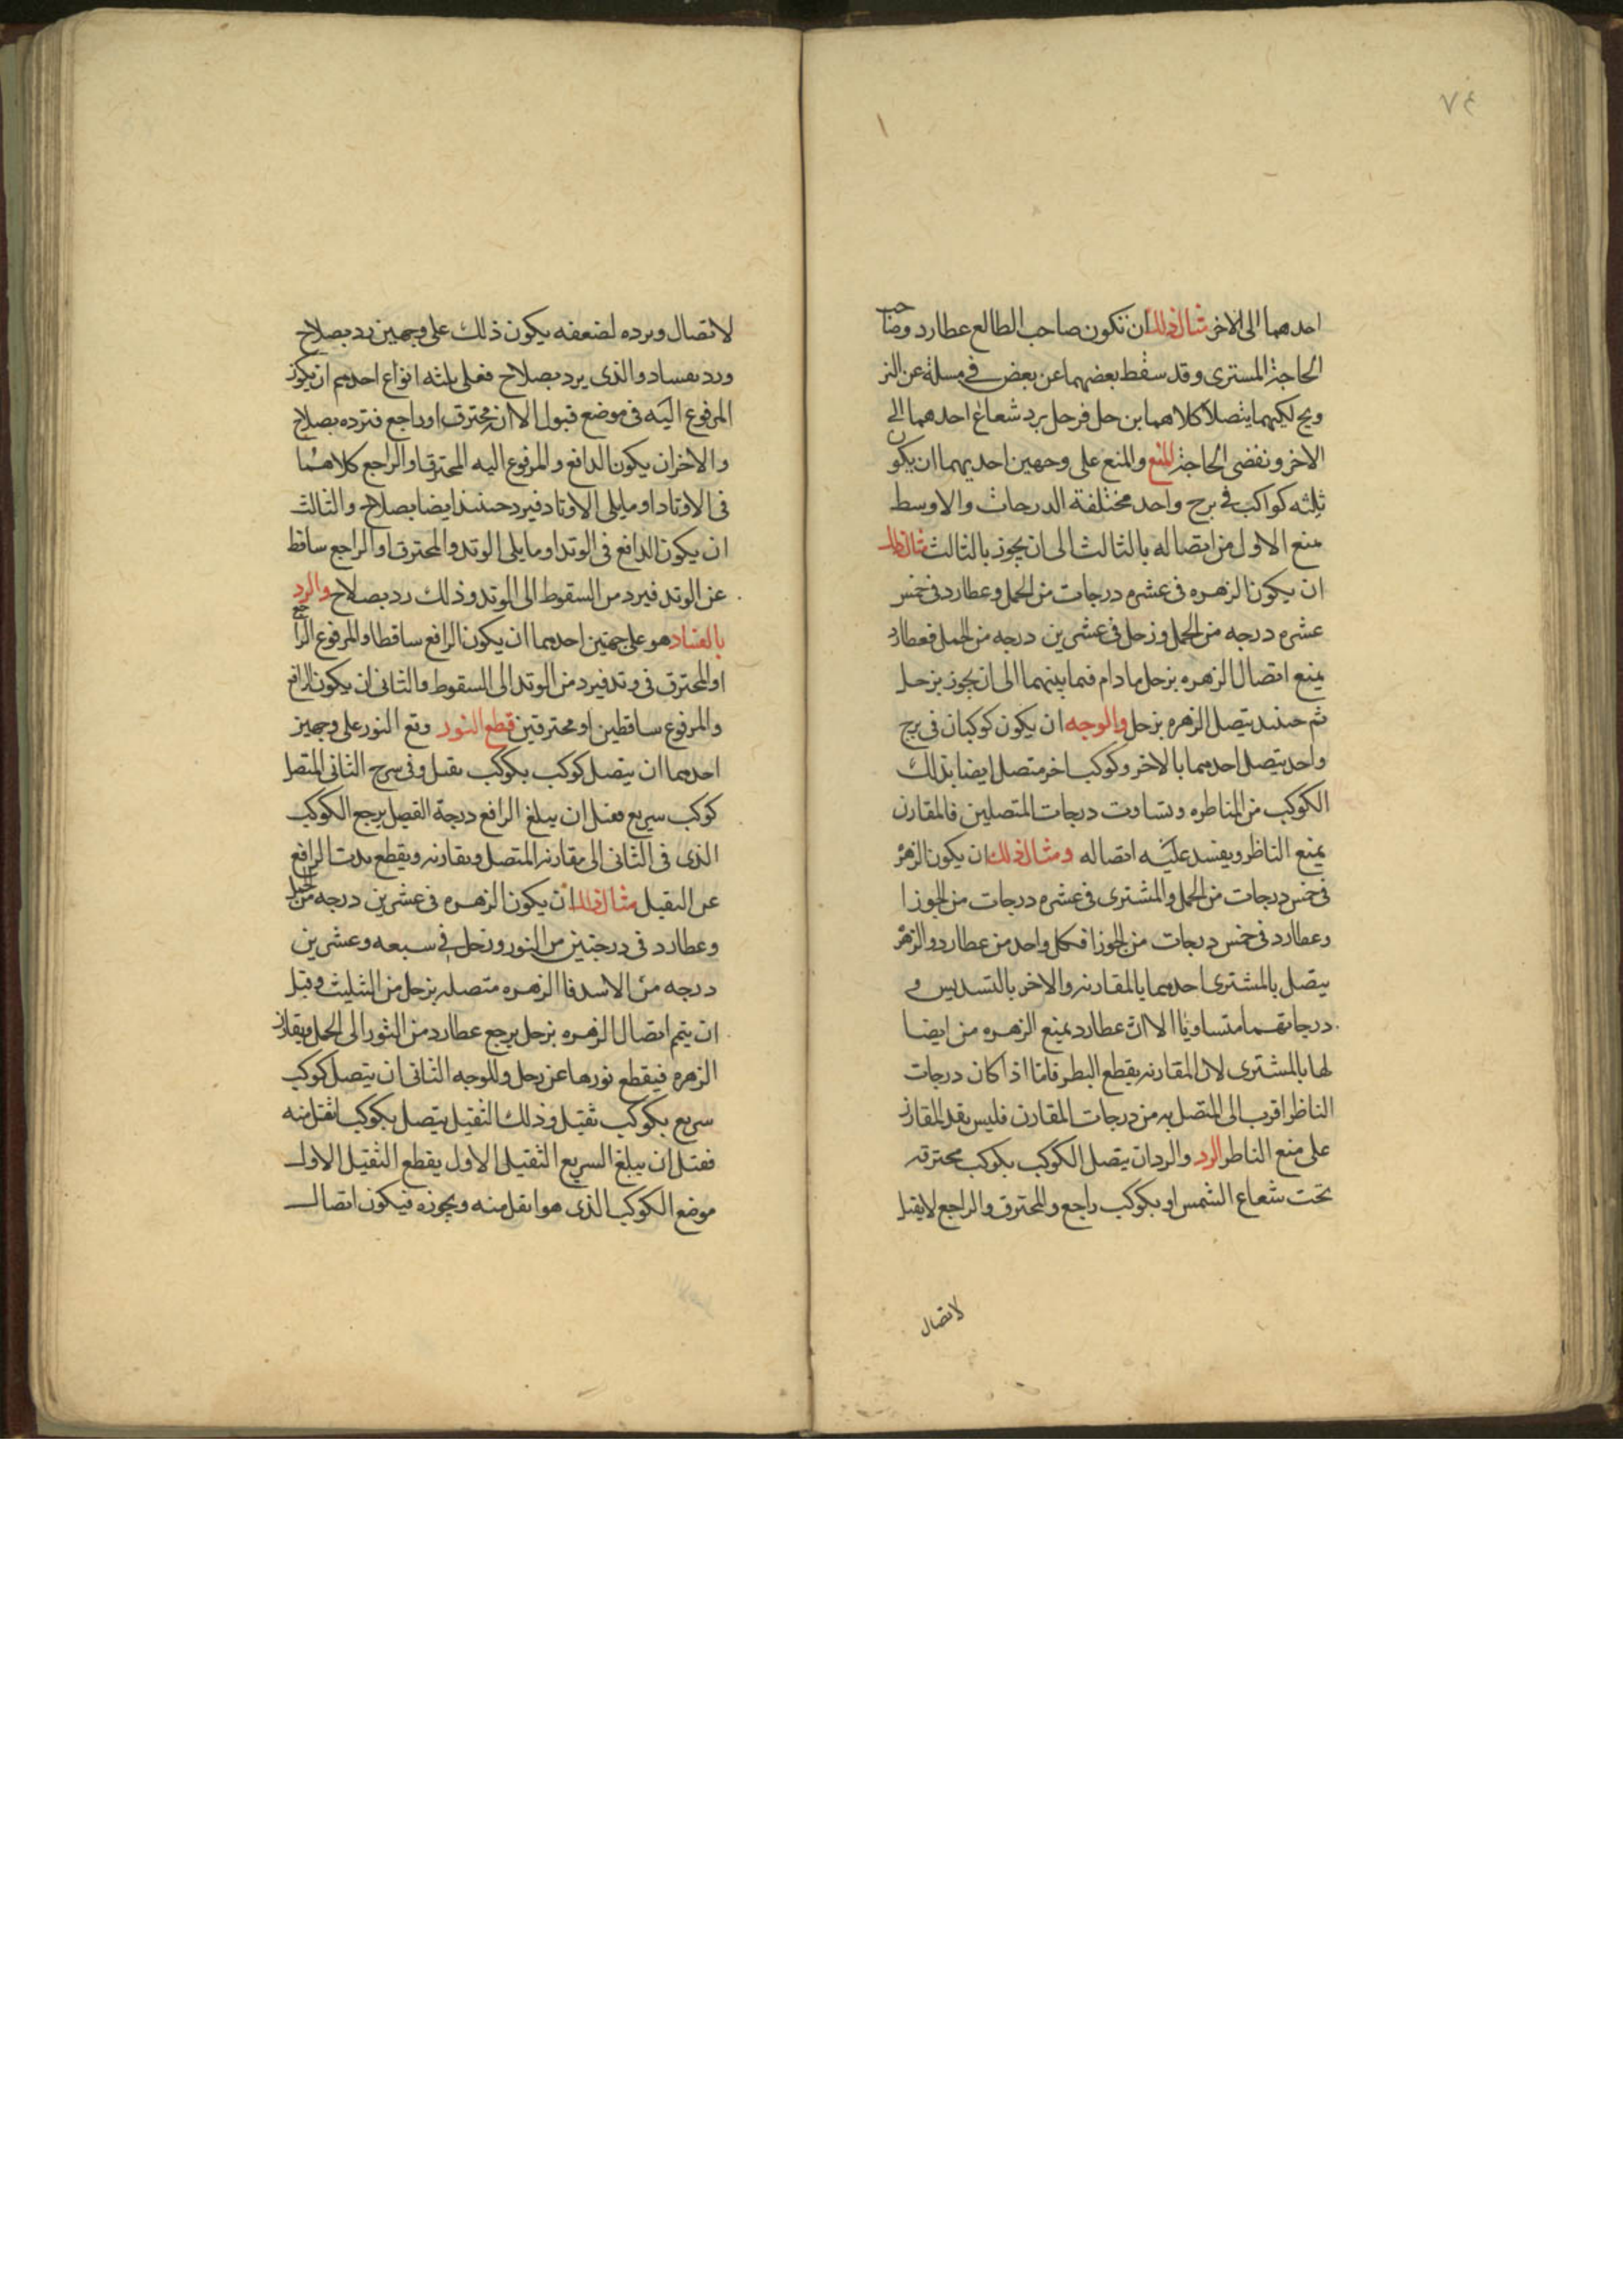 ٧٤
احدهما الى الاخر مثال ذلك ان تكون صاحب الطالع عطارد وصاحب
الحاجة المستری وقد سقط بعضهما عن بعض فی مسلة عن
يتصلا كلاهما بزحل فزحل يرد شعاع احدهما الی
الاخر ونقضی الحاجة المنع والمنع علی وجهين احديهما ان يكون
ثلثه كواكب فی برج واحد مختلفة الدرجات والاوسط
منع الاول من اتصاله بالثالث الی ان يجوز بالثالث مثال ذلك
ان يكون الزهره فی عشره درجات من الحمل وعطارد فی خمس
عشره درجه من الحمل وزحل فی عشرين درجه من الحمل فعطارد
يمنع اتصال الزهره بزحل مادام فيما بينهما الی ان يجوز بزحل
ثم حينئذ يتصل الزهره بزحل والوجه ان يكون كوكبان فی برج
واحد يتصل احدهما بالاخر وكوكب اخر متصل ايضا بذلك
الكوكب من المناطره وتساوت درجات المتصلين فالمقارن
يمنع الناظر ويفسد عليه اتصاله ومثال ذلك ان يكون الزهرة
فی خمس درجات من الحمل والمشتری فی عشره درجات من الجوزا
وعطارد فی خمس درجات من الجوزا فكل واحد من عطارد والزهرة
يتصل بالمشتری احدهما بالمقارنه والاخر بالتسديس و
درجاتهما متساويا الا ان عطارد يمنع الزهره من ايضا
لها بالمشتری لان المقارنه يقطع النطر فاما اذا كان درجات
الناظر اقرب الی المتصل به من درجات المقارن فليس يقد المقارن
علی منع الناطر الرد والرد ان يتصل الكوكب بكوكب محترقه
تحت شعاع الشمس او بكوكب راجع والمحترق والراجع لا يقبل
لاتصال
لاتصال ويرده لضعفه يكون ذلك علی وجهين رد بصلاح
ورد بفساد والذی يرد بصلاح فعلی ثلثه انواع احدهم ان يكون
المرفوع اليه فی موضع قبول الا ان محترق او راجع فترده بصلاح
والاخر ان يكون الدافع والمرفوع اليه المحترق او الراجع كلاهما
فی الاوتاد او مايلی الاوتاد فيرد حينئذ ايضا بصلاح والثالث
ان يكون الدافع فی الوتد او مايلی الوتد والمحترق او الراجع ساقط
عن الوتد فيرد من السقوط الی الوتد وذلك رد بصلاح والرد
بالفساد هو علی جهتين احدهما ان يكون الرافع ساقطا والمرفوع الراجع
او المحترق فی وتد فيرد من الوتد الی السقوط والثانی ان يكون الرافع
والمرفوع ساقطين او محترقين قطع النور وقع النور علی وجهين
احدهما ان يتصل كوكب بكوكب ثقيل وفی برج الثانی المتصل
كوكب سريع فقبل ان يبلغ الرافع درجة القيصل يرجع الكوكب
الذی فی الثانی الی مقارنه المتصل ويقارنه ويقطع الرافع
عن الثقيل مثال ذلك ان يكون الزهره فی عشرين درجه من الحمل
وعطارد فی درجتين من النور وزحل فی سبعه وعشرين
درجه من الاسد فاالزهره متصله بزحل من التثليث وقبل
ان يتم اتصال الزهره بزحل يرجع عطارد من الثور الی الحمل ويقارن
الزهره فيقطع نورها عن زحل وللوجه الثانی ان يتصل كوكب
سريع بكوكب ثقيل وذلك الثقيل يتصل بكوكب اثقل منه
فقبل ان يبلغ السريع الثقيل الاول يقطع الثقيل الاول
موضع الكوكب الذی هو اثقل منه ويجوزه فيكون اتصال